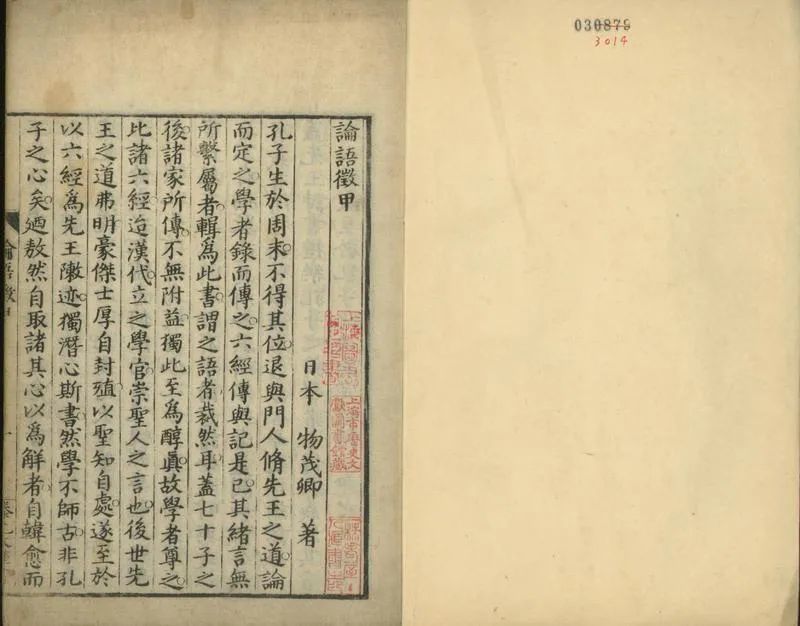 030879
3014
論語徵甲
日本 物茂卿 著
孔子生於周末不得其位退與門人脩先王之道論
而定之學者錄而傳之六經傳與記是已其緒言無
所繫屬者輯爲此書謂之語者裁然耳蓋七十子之
後諸家所傳不無附益獨此至爲醇眞故學者尊之
比諸六經迨漢代立之學官崇聖人之言也後世先
王之道弗明豪傑士厚自封殖以聖知自處遂至於
以六經爲先王陳迹獨潛心斯書然學不師古非孔
子之心矣廼敖然自取諸其心以爲解者自韓愈而
論語徵甲
一
上海市歷史文
獻圖書館藏